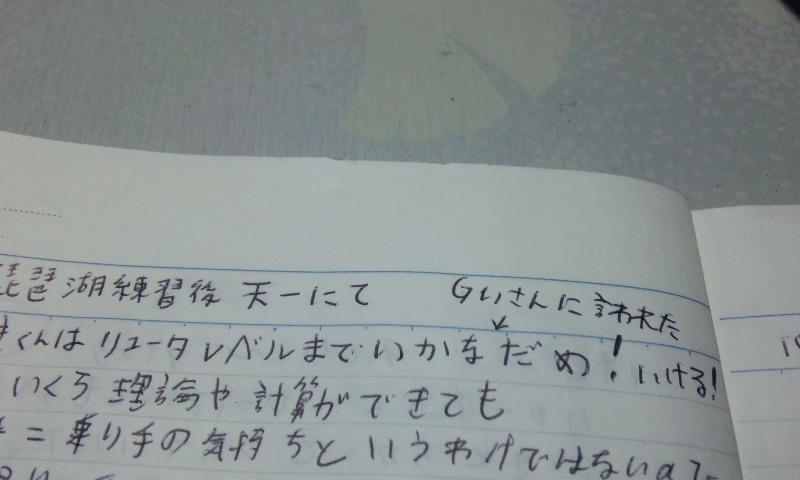 琵琶湖練習後 天一にて Gいさんに言われた
くんはリュータレベルまでいかなだめ!いける!
いくら理論や計算ができても
=乗り手の気持ちというわけではないので